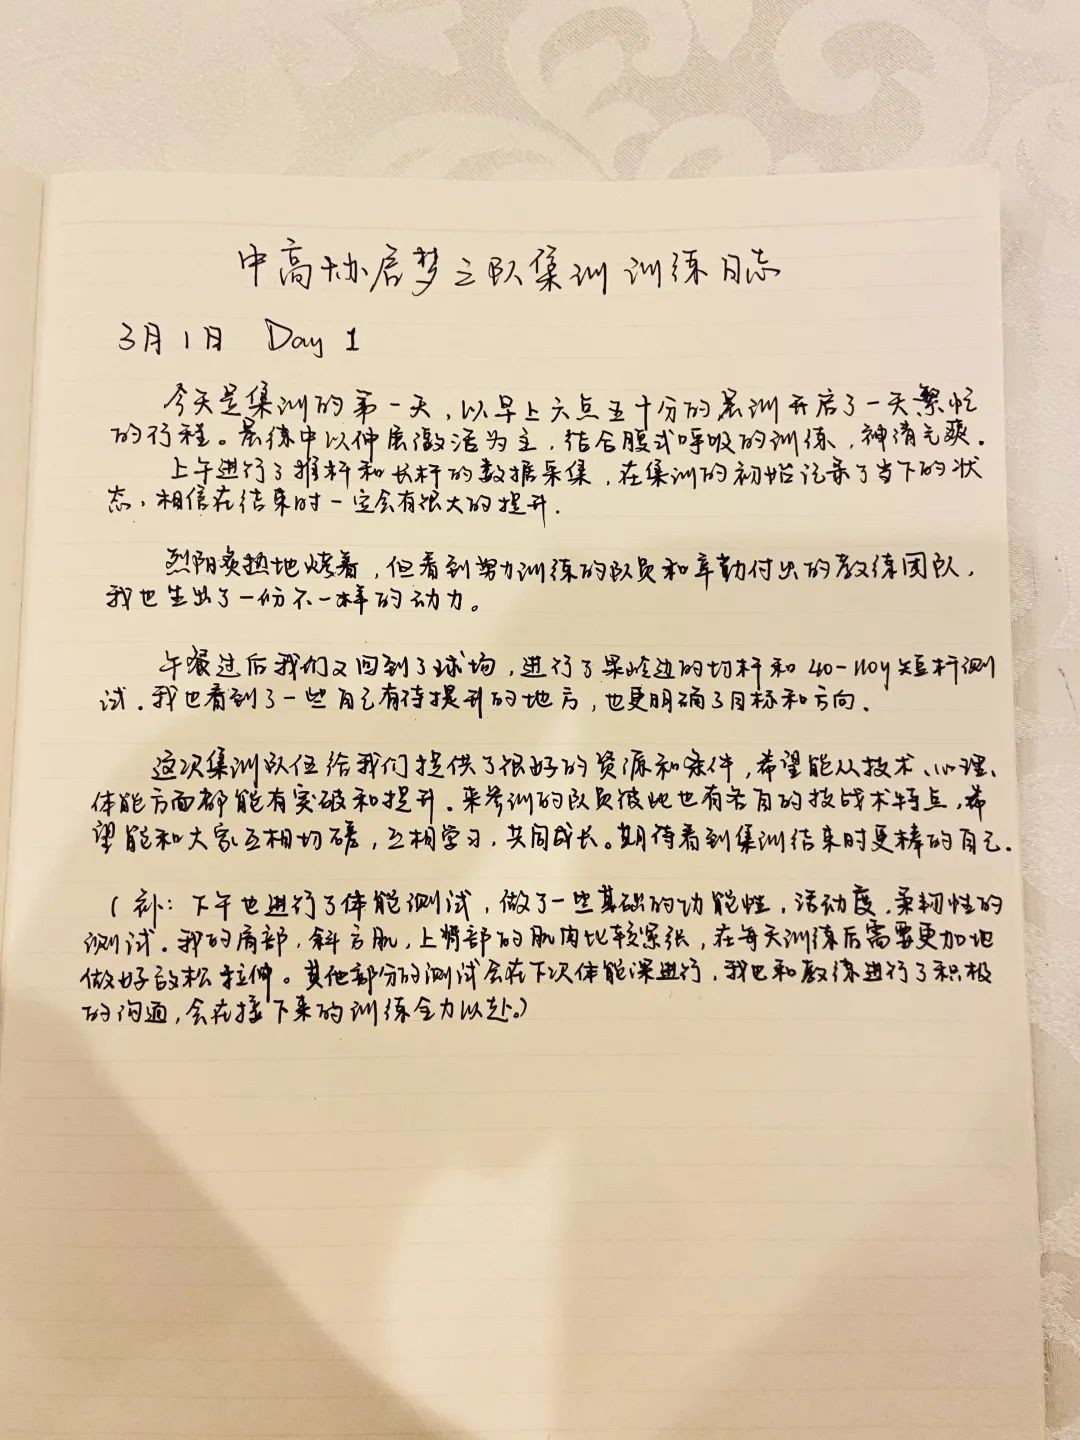 中高协启梦之队集训 训练日志
3月1日 Day 1
今天是集训的第一天,以早上六点五十分的晨训开启了一天繁忙
的行程。晨练中以伸展激活为主,结合腹式呼吸的训练,神清气爽。
上午进行了推杆和长杆的数据采集,在集训的初始记录了当下的状
态,相信在结束时一定会有很大的提升.
烈阳炙热地烤着,但看到努力训练的队员和辛勤付出的教练团队,
我也生出了一份不一样的动力。
午餐过后我们又回到了球场,进行了果岭边的切杆和40-110y短杆测
试.我也看到了一些自己有待提升的地方,也更明确了目标和方向.
这次集训队伍给我们提供了很好的资源和条件,希望能从技术、心理、
体能方面都能有突破和提升.来参训的队员彼此也有各自的技战术特点,希
望能和大家互相切磋,互相学习,共同成长。期待看到集训结束时更棒的自己.
(补:下午也进行了体能测试,做了一些基础的功能性,活动度,柔韧性的
测试.我的肩部,斜方肌,上臂部的肌肉比较紧张,在每天训练后需要更加地
做好放松拉伸。其他部分的测试会在下次体能课进行,我也和教练进行了积极
的沟通,会在接下来的训练全力以赴。)